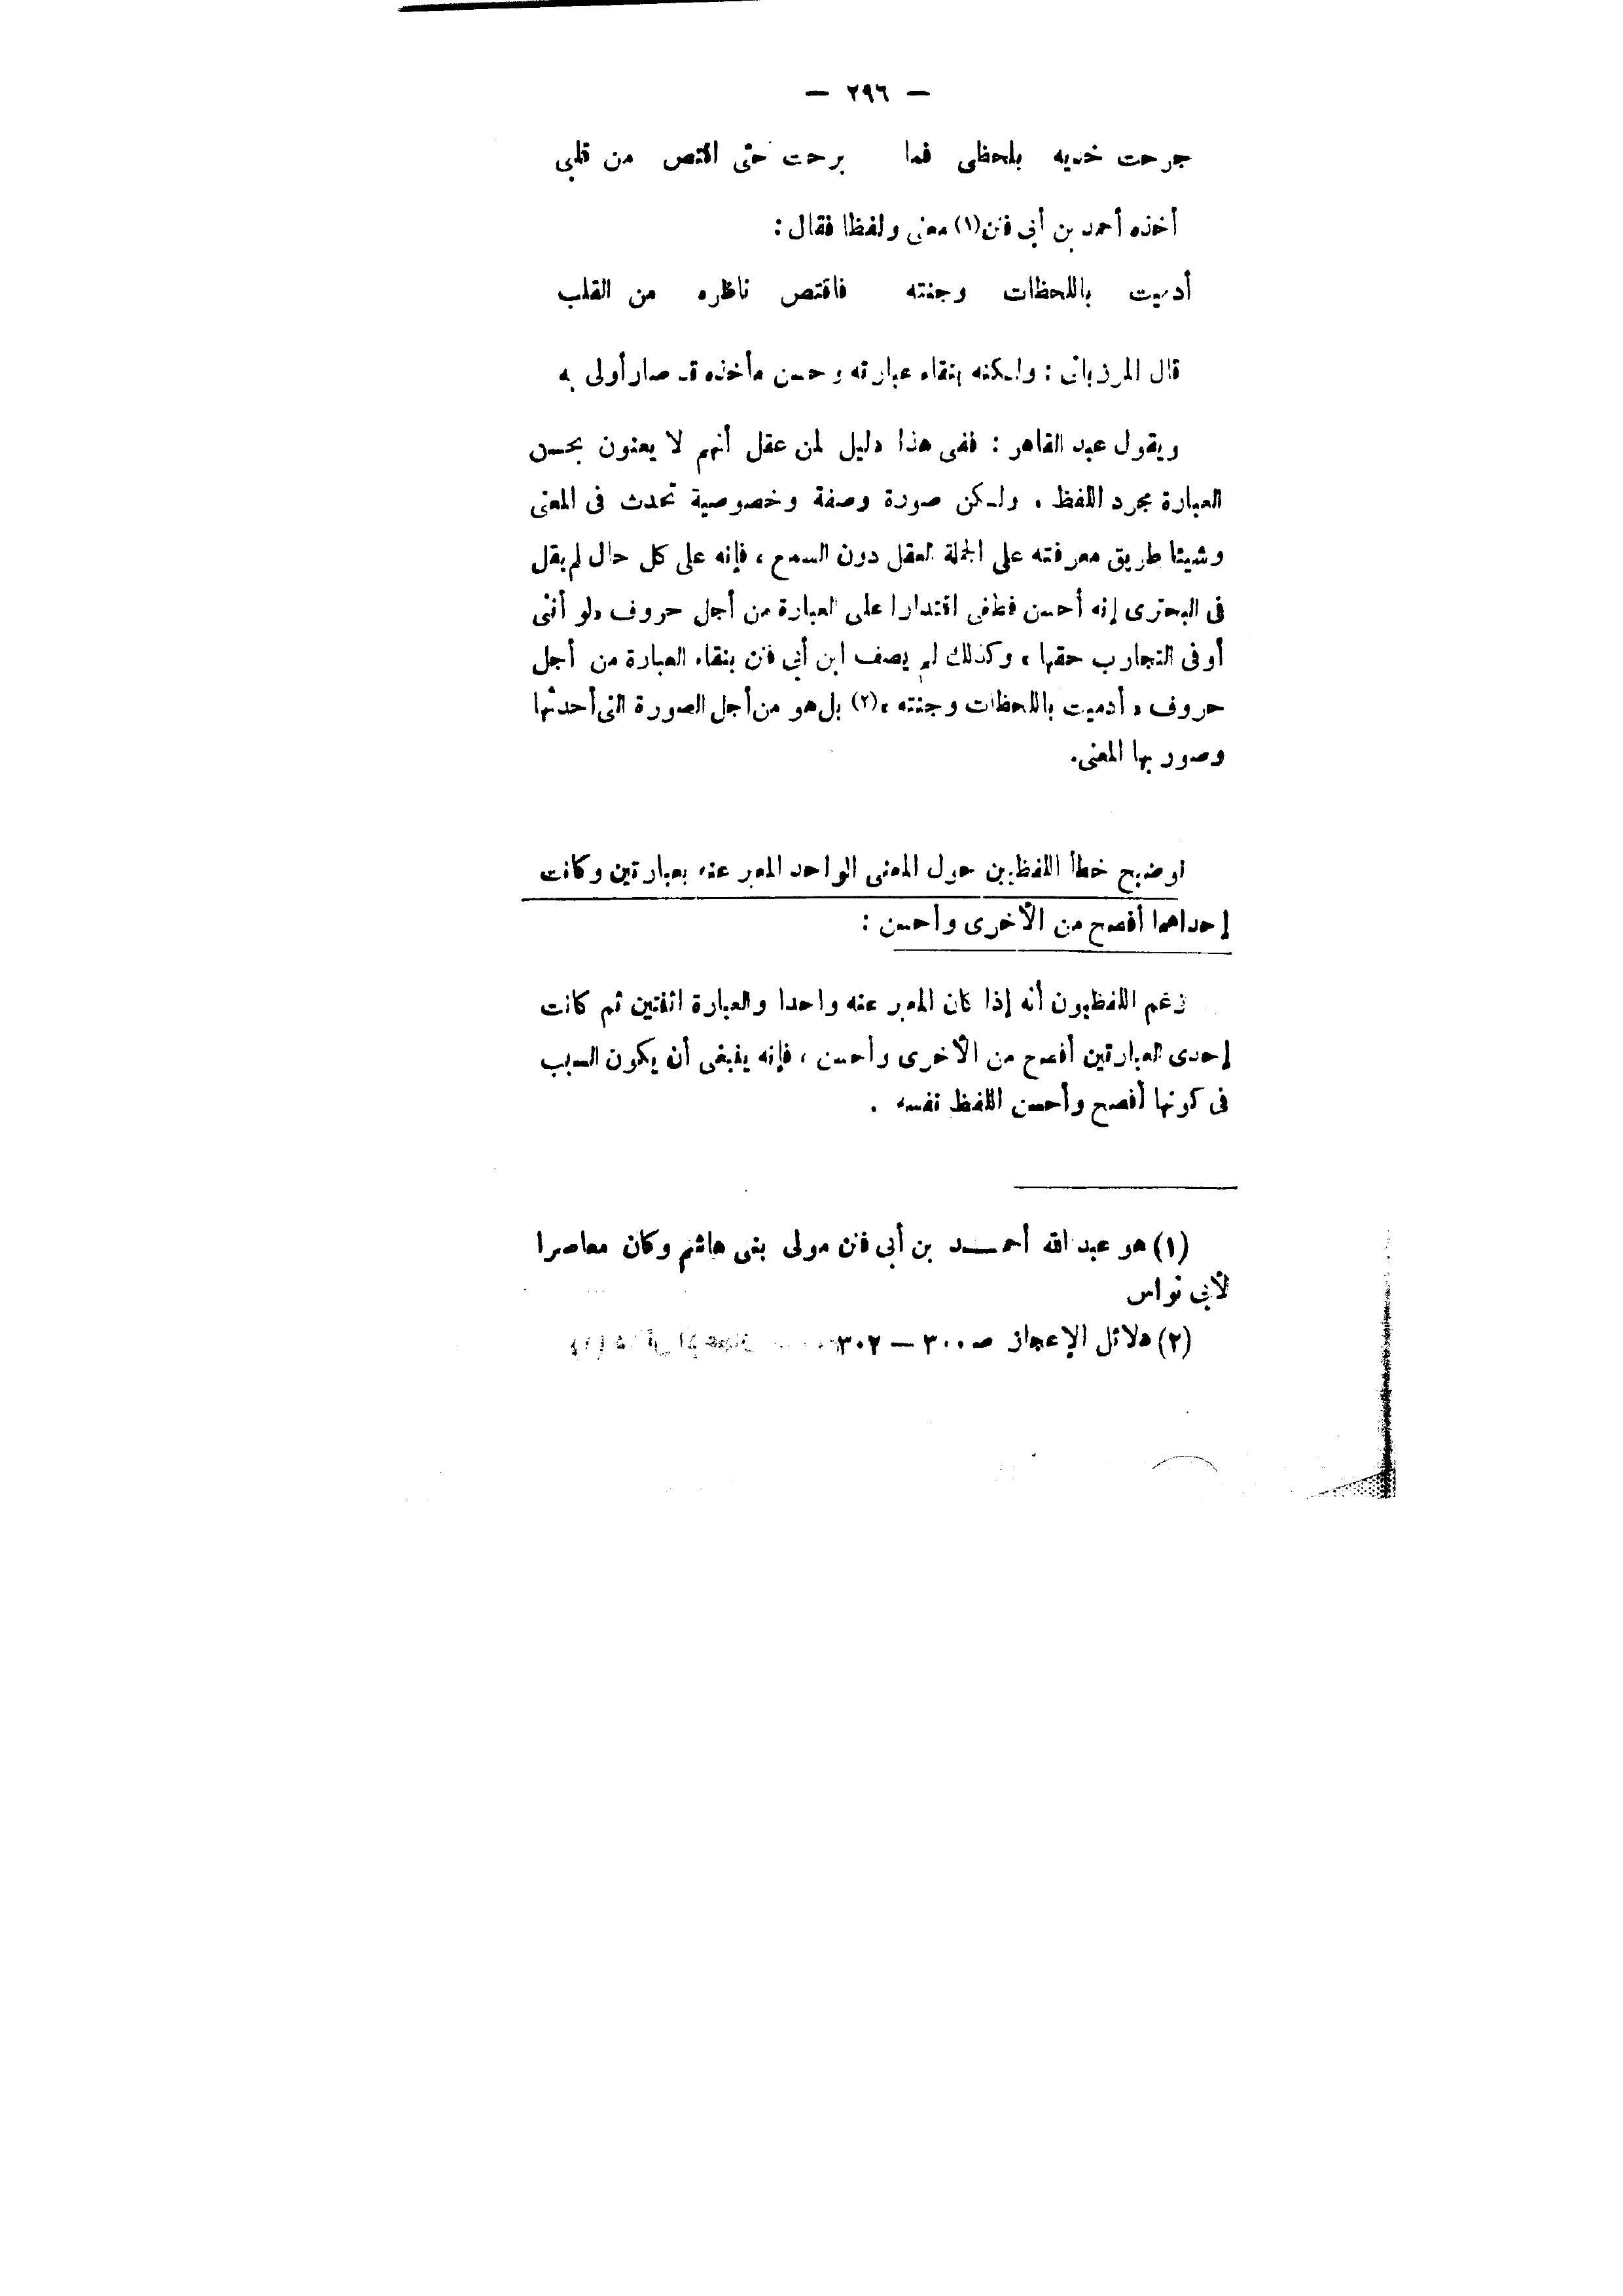 — ٢٩٦ —
جرحت خديه بلحظى فما برحت حتى اقتص من قلبى
أخذه أحمد بن أبى فنن(١) معنى ولفظا فقال :
أدميت باللحظات وجنته فاقتص ناظره من القلب
قال المرزبانى : ولكنه بنقاء عبارته وحسن مأخذه قد صار أولى به
ويقول عبد القاهر : ففى هذا دليل لمن عقل أنهم لا يعنون بحسن
العبارة مجرد اللفظ ، ولكن صورة وصفة وخصوصية تحدث فى المعنى
وشيئا طريق معرفته على الجملة العقل دون السمع ، فإنه على كل حال لم يقل
فى البحترى إنه أحسن فطغى اقتدارا على العبارة من أجل حروف «لو أننى
أوفى التجارب حقها» ، وكذلك لم يصف ابن أبى فنن بنقاء العبارة من أجل
حروف «أدميت باللحظات وجنته»(٢) بل هو من أجل الصورة التى أحدثها
وصور بها المعنى.
توضيح خطأ اللفظيين حول المعنى الواحد المعبر عنه بعبارتين وكانت
إحداهما أفصح من الأخرى وأحسن :
زعم اللفظيون أنه إذا كان المعبر عنه واحدا والعبارة اثنتين ثم كانت
إحدى العبارتين أفصح من الأخرى وأحسن ، فإنه ينبغى أن يكون السبب
فى كونها أفصح وأحسن اللفظ نفسه .
(١) هو عبد الله أحمـــد بن أبى فنن مولى بنى هاشم وكان معاصرا
لأبى نواس
(٢) دلائل الإعجاز صـ ٣٠٠ — ٣٠٢